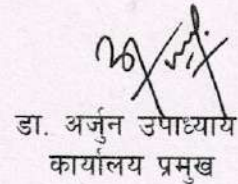 डा. अर्जुन उपाध्याय
कार्यालय प्रमुख